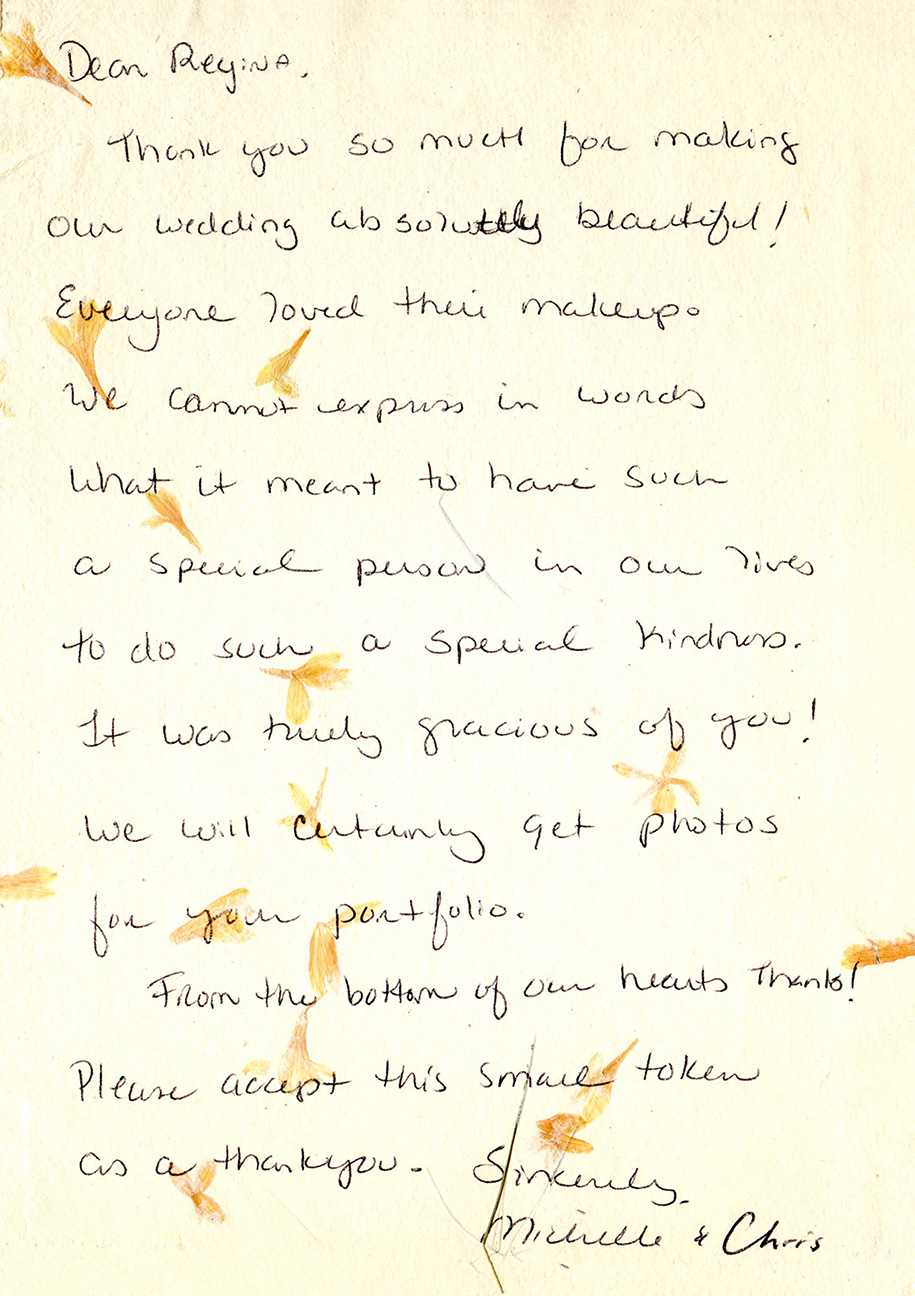 Dear Regina,
Thank you so much for making
our wedding absolutely beautiful!
Everyone loved their makeup.
We cannot express in words
what it meant to have such
a special person in our lives
to do such a special kindness.
It was truly gracious of you!
We will certainly get photos
for your portfolio.
From the bottom of our hearts Thanks!
Please accept this small token
as a thankyou. Sinkerely,
Michelle & Chris